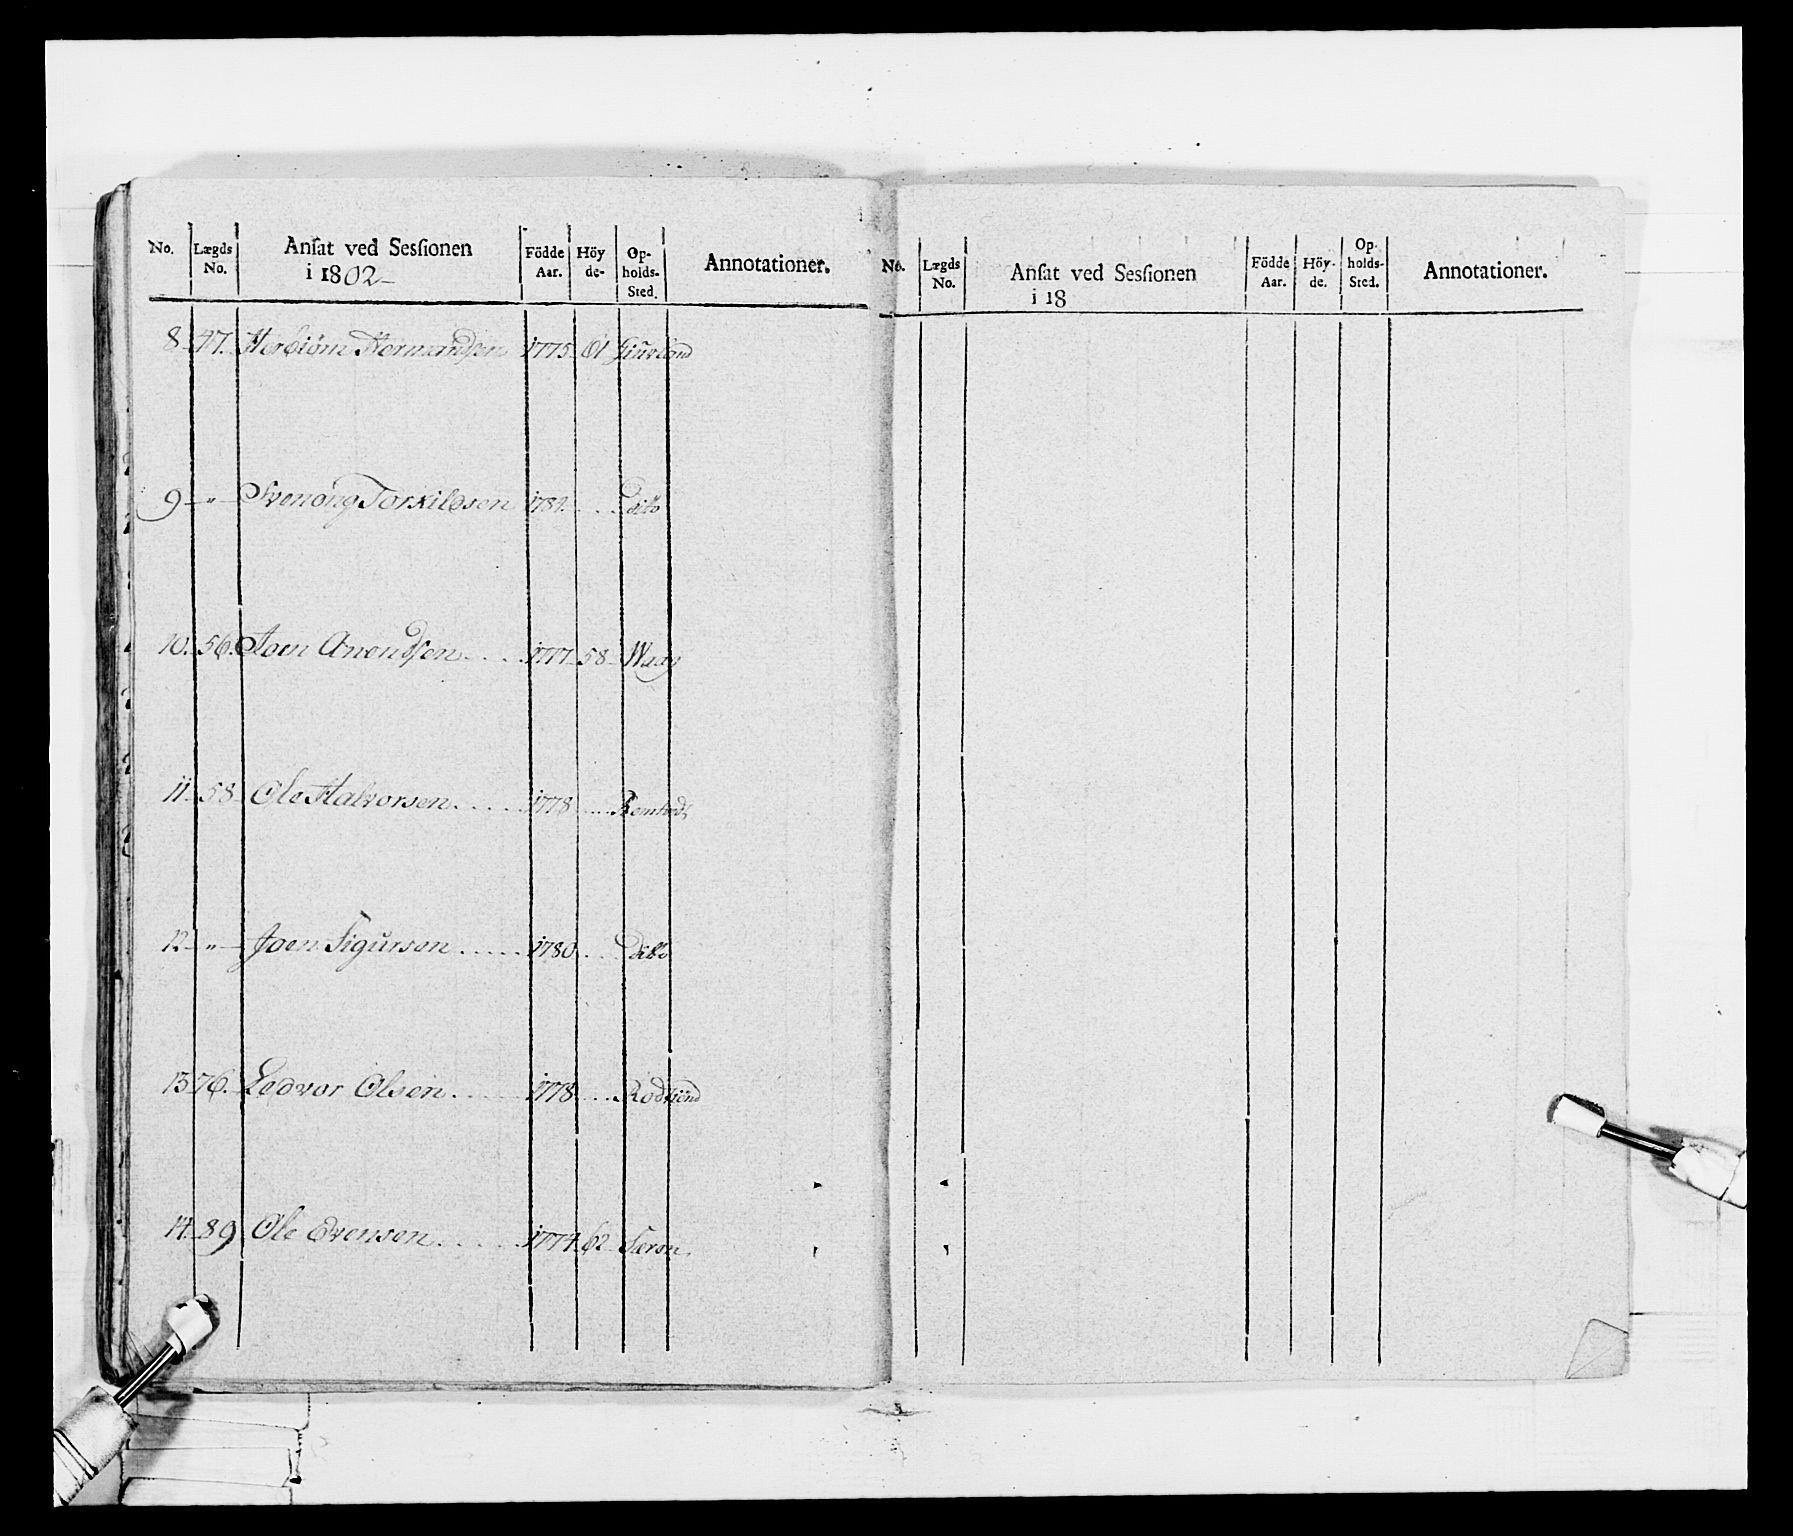 No. Lægds No. Ansat ved Sessionen i 1802 Födde Aar. Höyde- Opholds-Sted. Annotationer.
8 47. Herbiörn Hermandsen 1775 61
9 " Svenong Torkildsen 1781. ditto
10. 56. Joen Anondsen 1777 58 Waag
11 58 Ole Halvorsen 1778
12 " Joen Sigursen 1780 ditto
13 76. Ledvor Olsen 1778
14. 89 Ole Evensen 1774 62
No. Lægds No. Ansat ved Sessionen i 18 Födde Aar. Höy-de. Opholds-Sted. Annotationer.